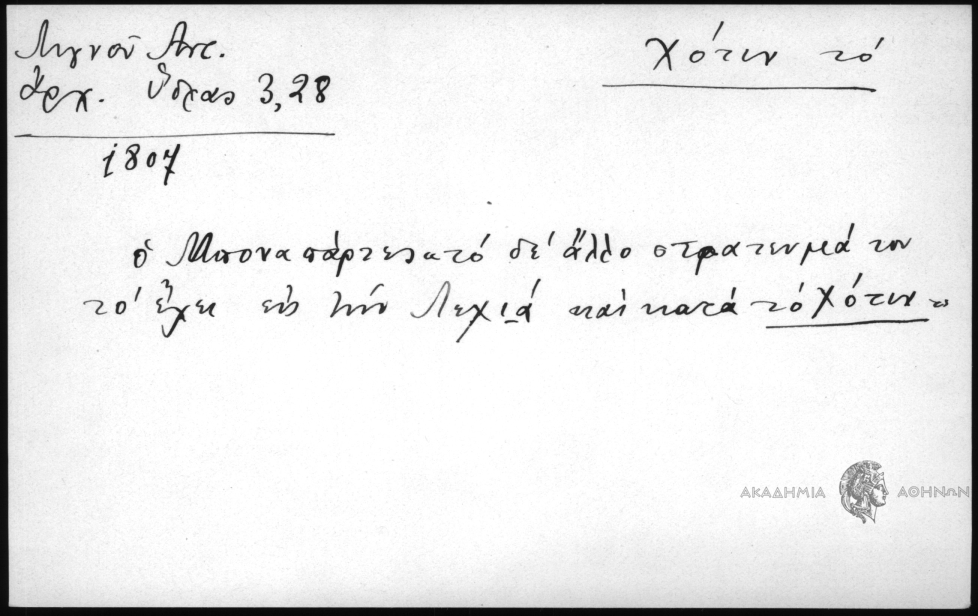 Λιγνοῦ Ἀντ.
Ἀρχ. Ὕδρας 3,28
1807
Χότιν τό
ὁ Μποναπάρτες τό δέ ἄλλο στράτευμά του
τό ἔχει εἰς τήν Λεχιά καί κατά τό Χότιν
ΑΚΑΔΗΜΙΑ ΑΘΗΝΩΝ